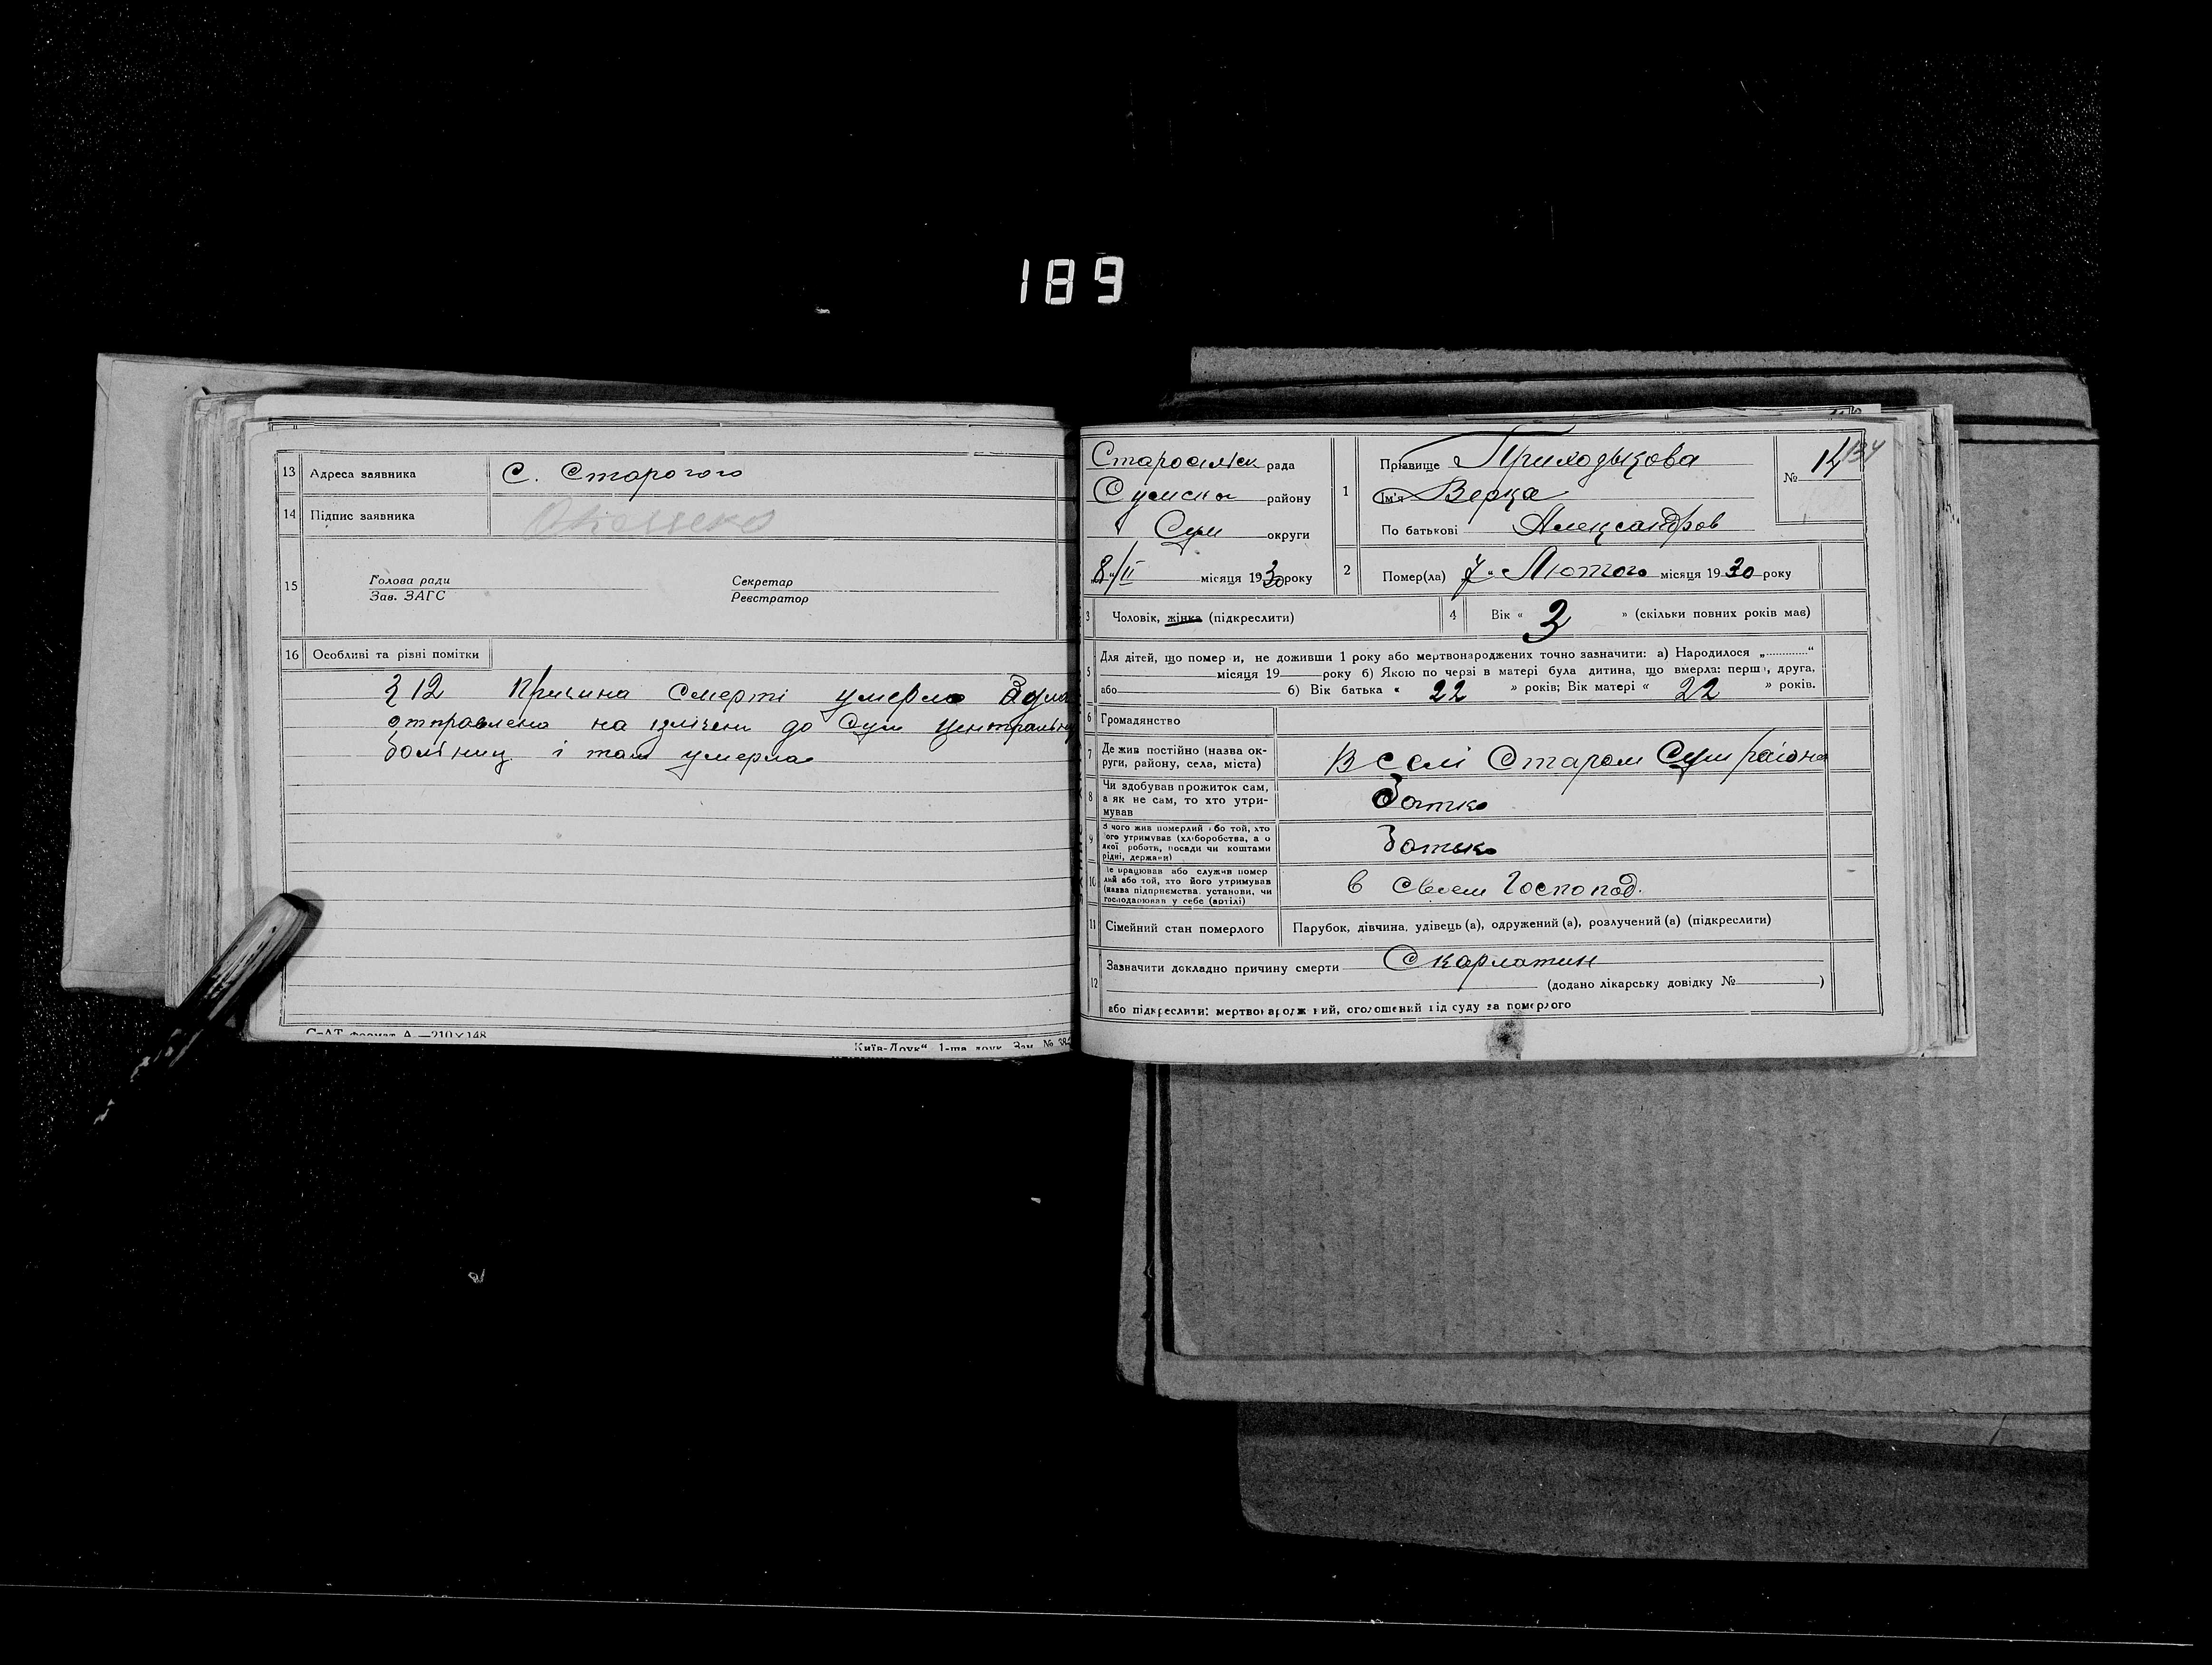 189
13 Адреса заявника С. Старого
14 Підпис заявника
15 Голова ради Секретар
Зав. ЗАГС Реєстратор
16 Особливі та різні помітки
§ 12 Причина смерті умерла
отправлена на ізлічени до Сум Центральну
больниц і там умерла
С-АТ Формат А —210×148
Київ-Друк“ 1-ша друк. Зам. №
Староселеск рада
Сумског району
Сум округи
„8“/II місяця 1930 року
1 Прізвище Приходькова
Ім'я Верка
По батькові Александров
№ 14 134
2 Помер(ла) 7 „ Лютого місяця 1930 року
3 Чоловік, жінка (підкреслити)
4 Вік « 3 » (скільки повних років має)
5 Для дітей, що померли, не доживши 1 року або мертвонароджених точно зазначити: а) Народилося „............“
місяця 19 року б) Якою по черзі в матері була дитина, що вмерла: перша, друга,
або б) Вік батька « 22 » років; Вік матері « 22 » років.
6 Громадянство
7 Де жив постійно (назва округи, району, села, міста) В селі Старом Сум района
8 Чи здобував прожиток сам, а як не сам, то хто утримував Батко
9 З чого жив померлий або той, хто його утримував (хліборобства, а о якої роботи, посади чи коштами рідні, держави) Батько
10 Де працював або служив помер лий або той, хто його утримував (назва підприємства, установи, чи господарював у себе (артілі) в своем Госпопод.
11 Сімейний стан померлого Парубок, дівчина, удівець (а), одружений (а), розлучений (а) (підкреслити)
12 Зазначити докладно причину смерти Скарлатин
(додано лікарську довідку № )
або підкреслити: мертвонароджений, оголошений від суду за померлого